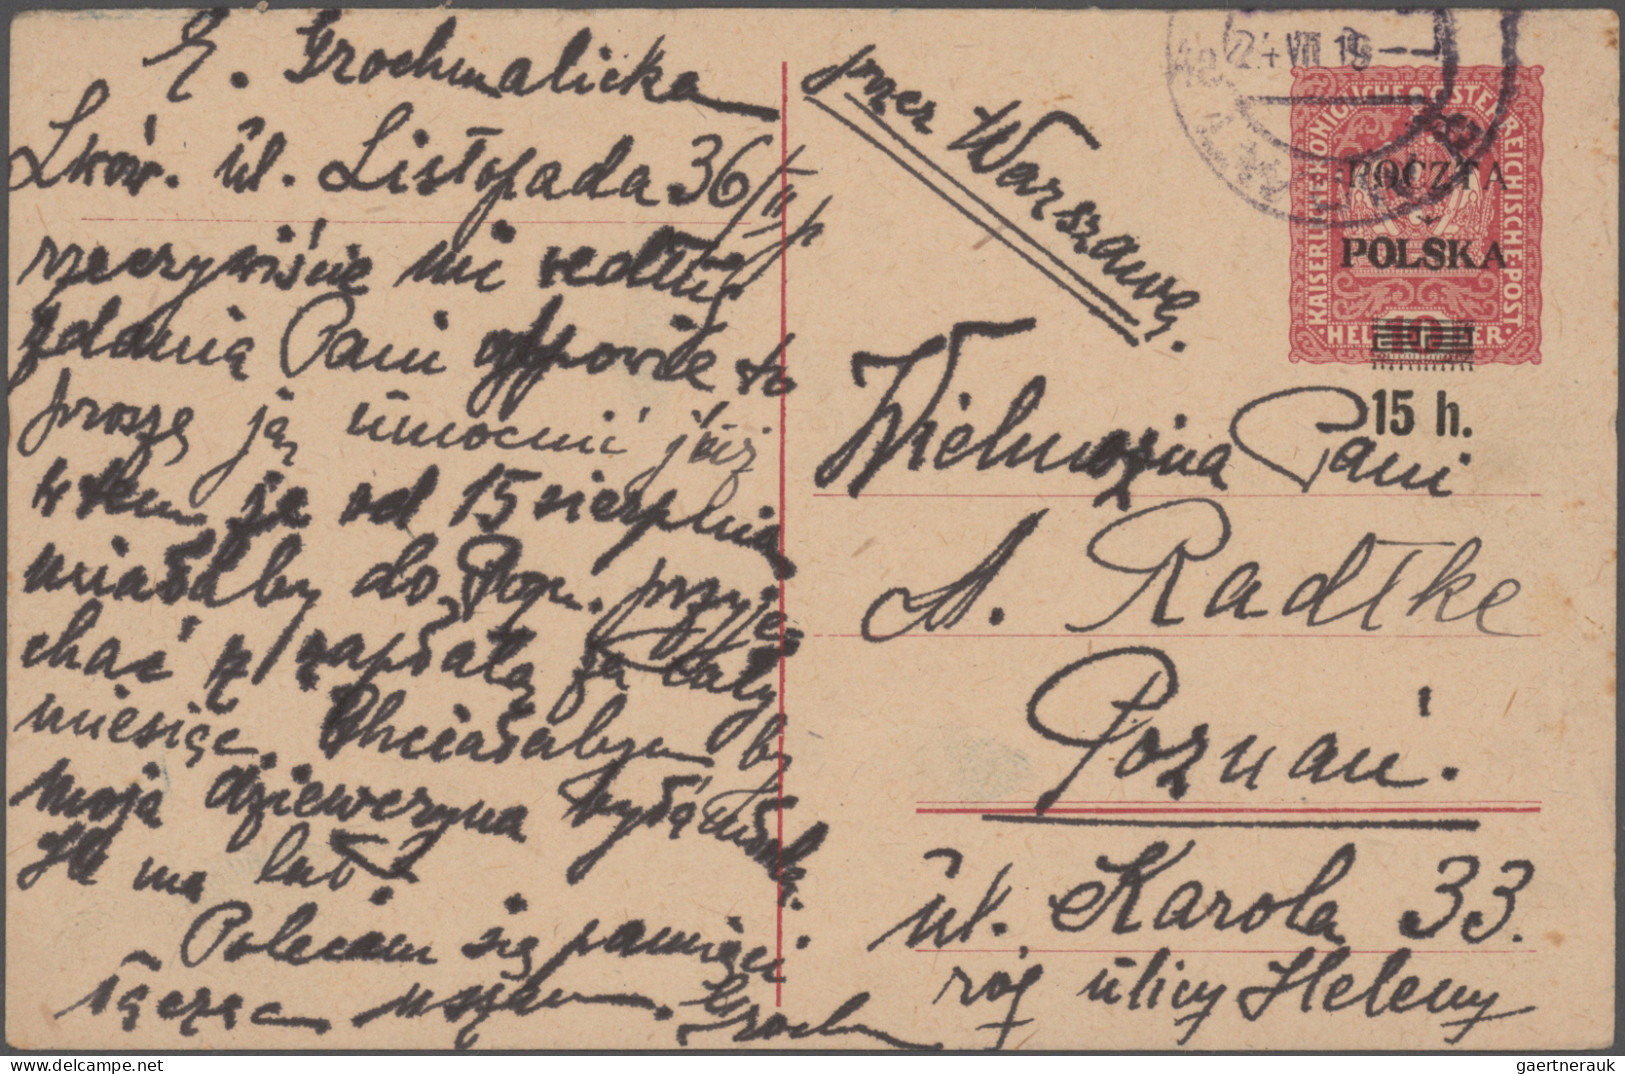 E. Grochmalicka
Lwów. ul. Listopada 36/II p
rzeczywiście nie według
zdania Pani to
proszę ją umocnić już
w tem, że od 15 sierpnia
miałaby do Pozn. przyje-
chać z zapłatą za cały
miesiąc. Chciałabym by
moja dziewczyna była
Ile ma lat?
Polecam się pamięci
łącząc Groch
przez Warszawę.
24 VII 19
KAISERLICHE·KÖNIGLICHE ÖSTERREICHISCHE·POST
POCZTA
POLSKA
HELLER 10 HELLER
15 h.
Wielmożna Pani
A. Radtke
Poznań.
ul. Karola 33.
róg ulicy Heleny
gaertnerauk